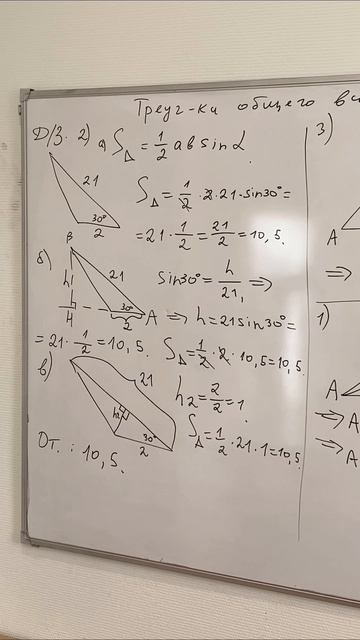 Треуг-ки общего ви
Д/З. 2) а) S△ = 1/2 a b sin α.
21
30°
2
S△ = 1/2 · 2 · 21 · sin30° =
= 21 · 1/2 = 21/2 = 10,5.
б)
B
h
21
H
30°
2
A
sin30° = h/21, ⇒
⇒ h = 21 sin30° =
= 21 · 1/2 = 10,5. S△ = 1/2 · 2 · 10,5 = 10,5.
в)
21
h₂
30°
2
h₂ = 2/2 = 1
S△ = 1/2 · 21 · 1 = 10,5.
От.: 10,5.
3)
A
⇒
1)
A
⇒ A
⇒ A